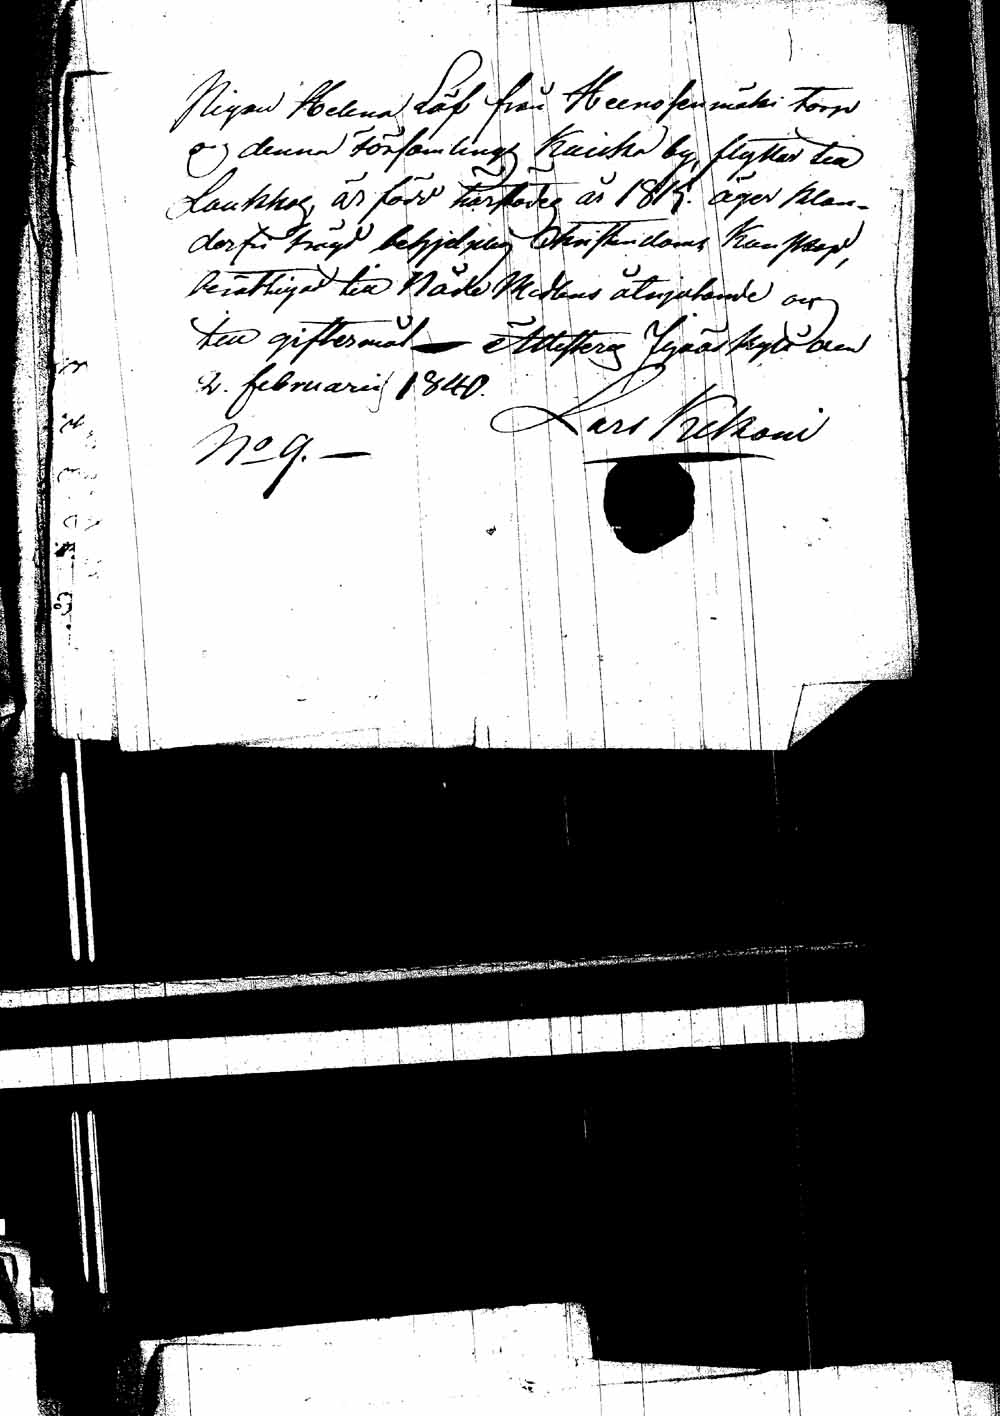 Pigan Helena Löf från Heinosenmäki torp
och denna Församlings Kaicka by, flyttar till
Laukkas, är född härstädes år 1815. äger klan-
derfri frägd behjelplig Christendoms kunskap,
berättigad till Nåde Medlens åtnjutande och
till giftermål — Attesteras Jyväskylä den
2. februarii 1840.
Lars Kekoni
No 9. —